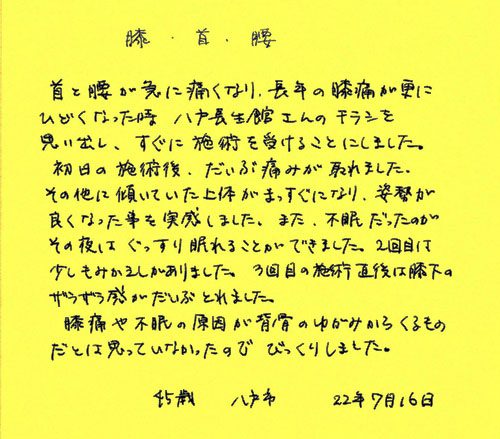 膝・首・腰
首と腰が急に痛くなり、長年の膝痛が更に
ひどくなった時 八戸長生館さんのチラシを
思い出し、すぐに施術を受けることにしました。
初日の施術後、だいぶ痛みが取れました。
その他に傾いていた上体がまっすぐになり、姿勢が
良くなった事を実感しました。また、不眠だったのが
その夜はぐっすり眠れることができました。2回目は
少しもみかえしがありました。3回目の施術直後は膝下の
ザラザラ感がだいぶとれました。
膝痛や不眠の原因が背骨のゆがみからくるもの
だとは思っていなかったので びっくりしました。
45歳 八戸市 22年7月16日